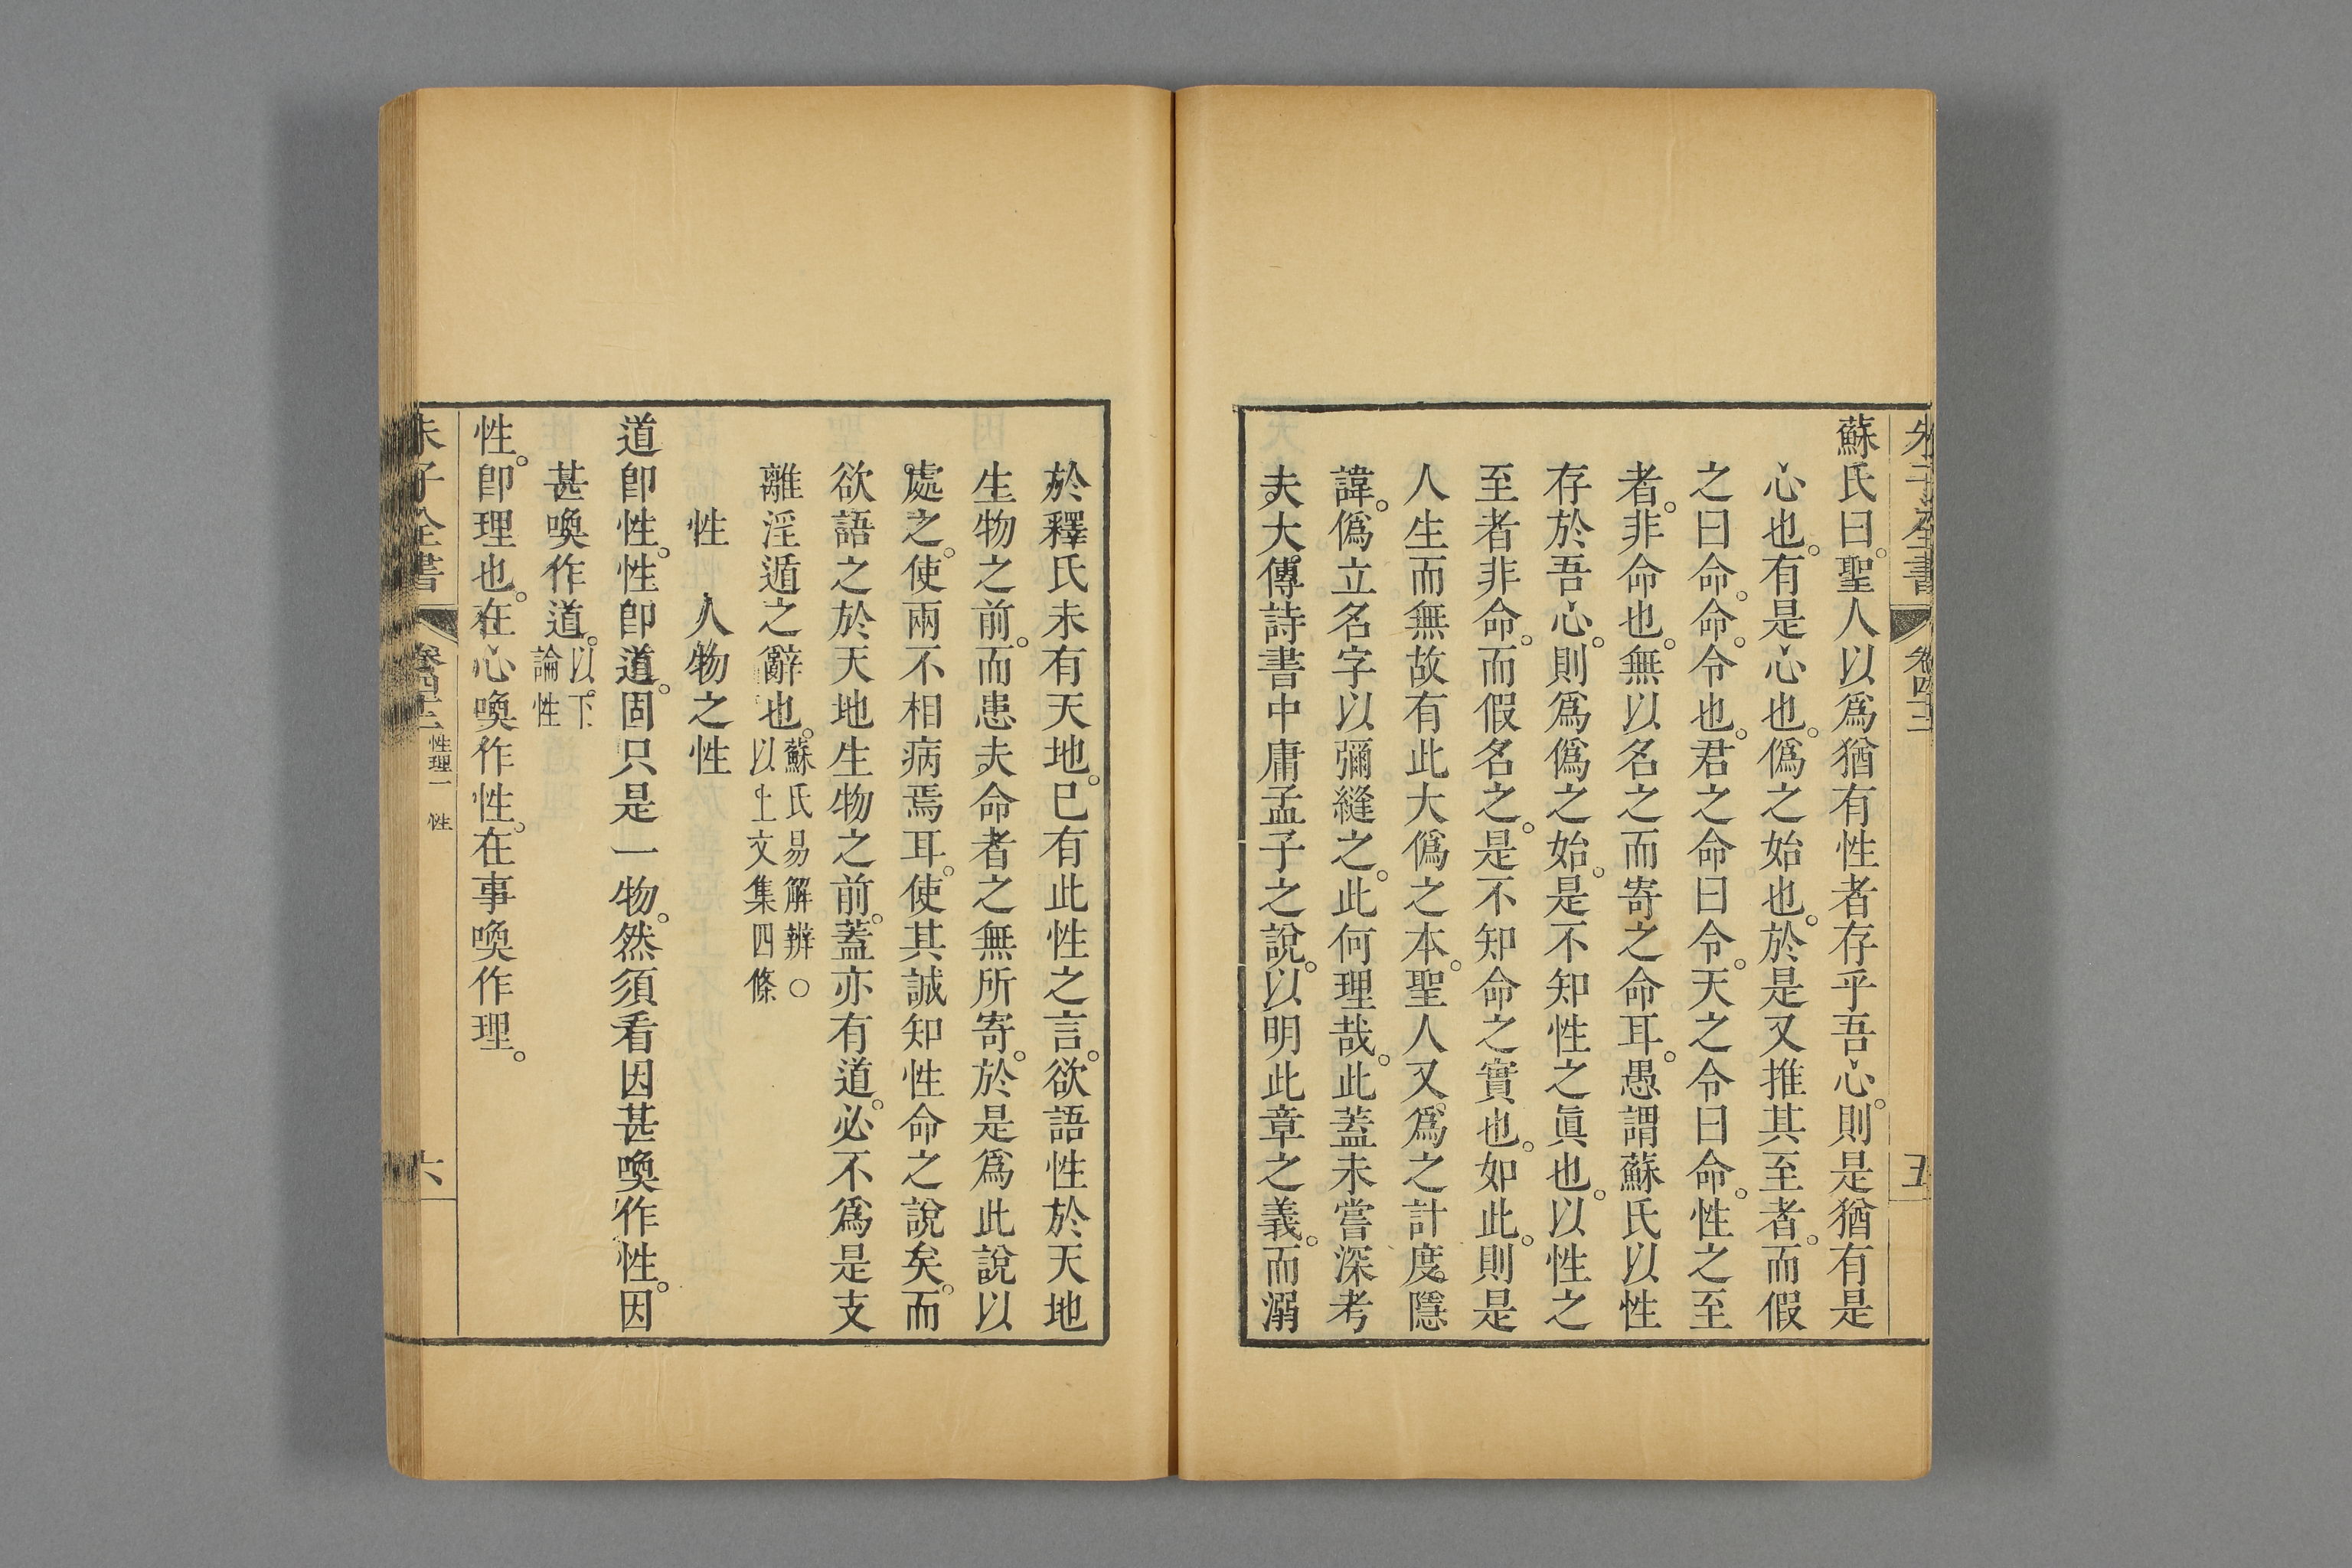 朱子全書 卷四十二 五
蘇氏曰。聖人以爲猶有性者存乎吾心。則是猶有是
心也。有是心也。僞之始也。於是又推其至者。而假
之曰命。命。令也。君之命曰令。天之令曰命。性之至
者。非命也。無以名之而寄之命耳。愚謂蘇氏以性
存於吾心。則爲僞之始。是不知性之眞也。以性之
至者非命。而假名之。是不知命之實也。如此。則是
人生而無故有此大僞之本。聖人又爲之計度。隱
諱。僞立名字以彌縫之。此何理哉。此蓋未嘗深考
夫大傳詩書中庸孟子之說。以明此章之義。而溺
於釋氏未有天地。已有此性之言。欲語性於天地
生物之前。而患夫命者之無所寄。於是爲此說以
處之。使兩不相病焉耳。使其誠知性命之說矣。而
欲語之於天地生物之前。蓋亦有道。必不爲是支
離淫遁之辭也。蘇氏易解辨○
以上文集四條
性 人物之性
道卽性。性卽道。固只是一物。然須看因甚喚作性。因
甚喚作道。以下
論性
性。卽理也。在心喚作性。在事喚作理。
朱子全書 卷四十二 性理一 性 六